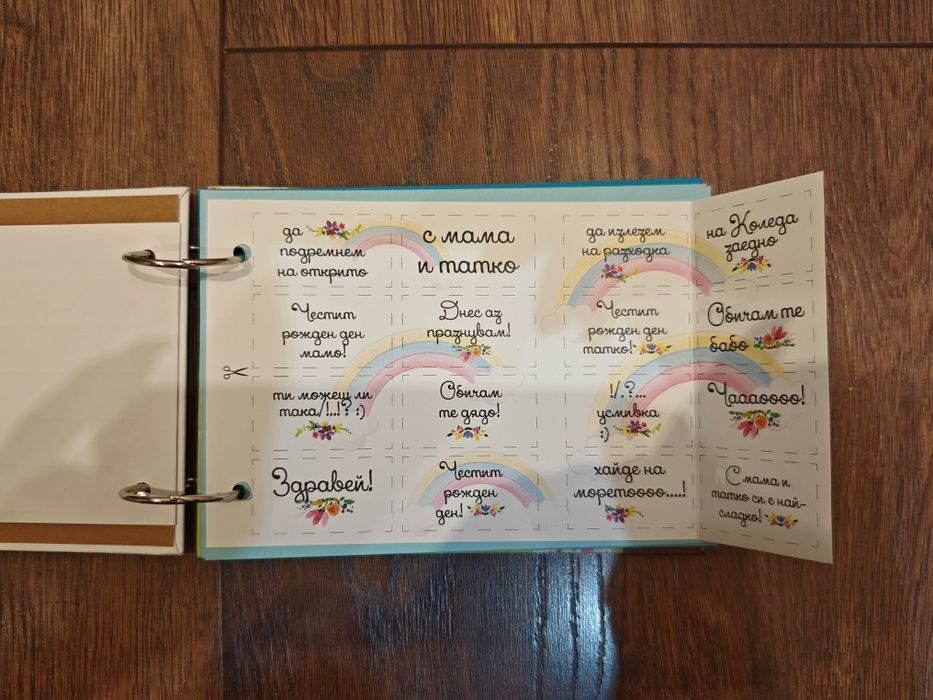 да
подремнем
на открито
с мама
и татко
да излезем
на разходка
на Коледа
заедно
Честит
рожден ден
мамо!
Днес аз
празнувам!
Честит
рожден ден
татко!
Обичам те
бабо
ти можеш ли
така/!..!? :)
Обичам
те дядо!
!/.?...
усмивка
:)
Чаааоооо!
Здравей!
Честит
рожден
ден!
хайде на
моретоооо.....!
С мама и
татко си е най-
сладко!